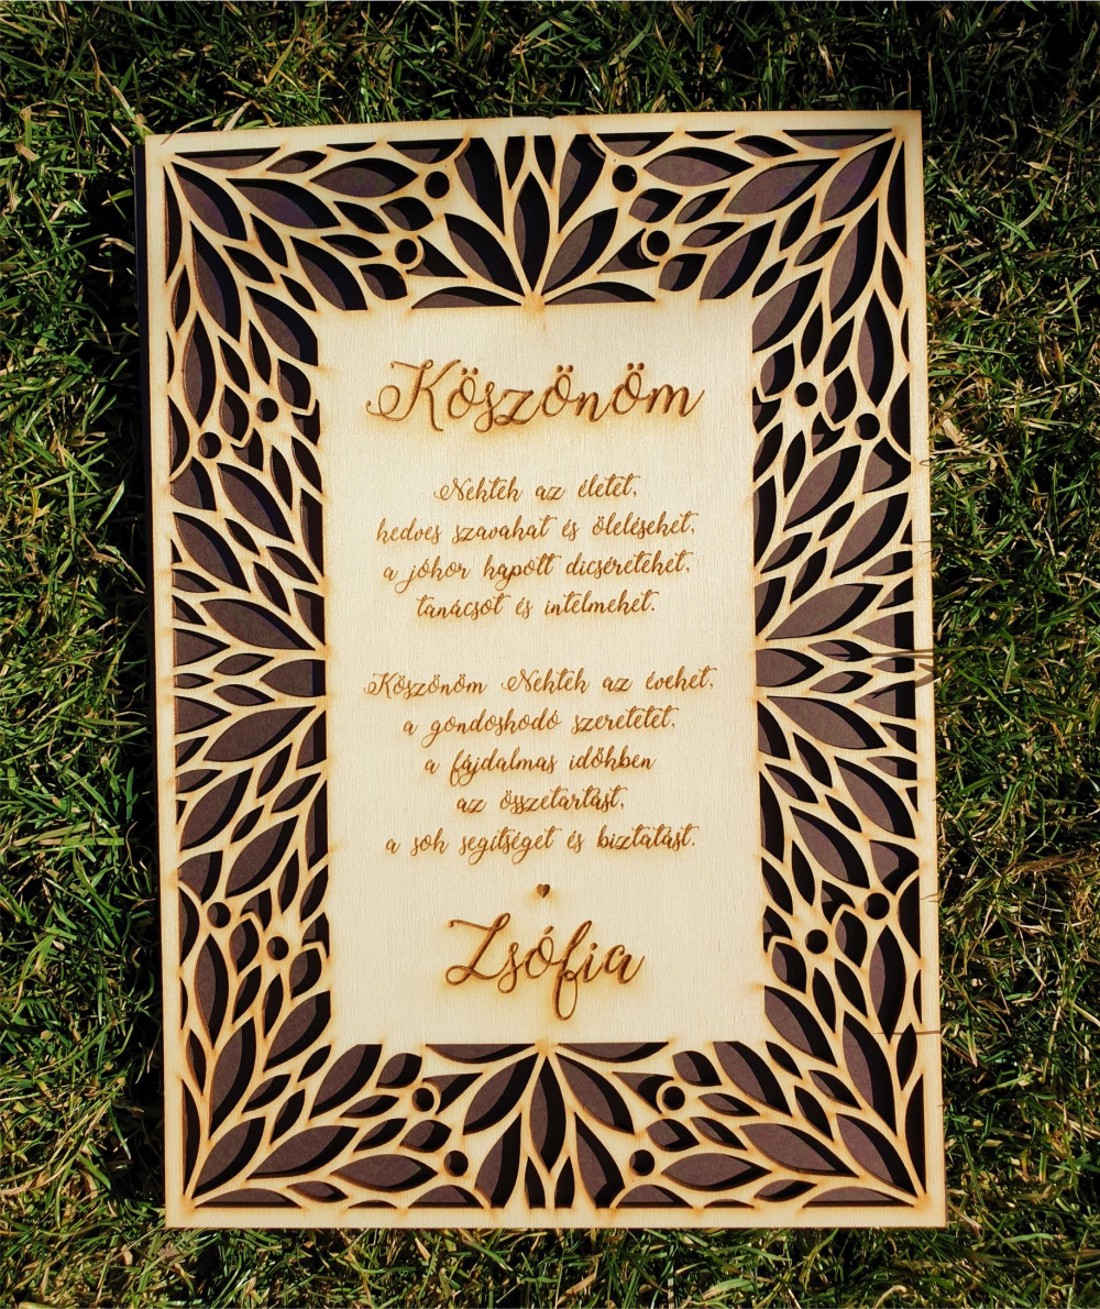 Köszönöm
Nektek az életet,
kedves szavakat és öleléseket,
a jókor kapott dicséreteket,
tanácsot és intelmeket.
Köszönöm Nektek az éveket,
a gondoskodó szeretetet,
a fájdalmas időkben
az összetartást,
a sok segítséget és biztatást.
Zsófia